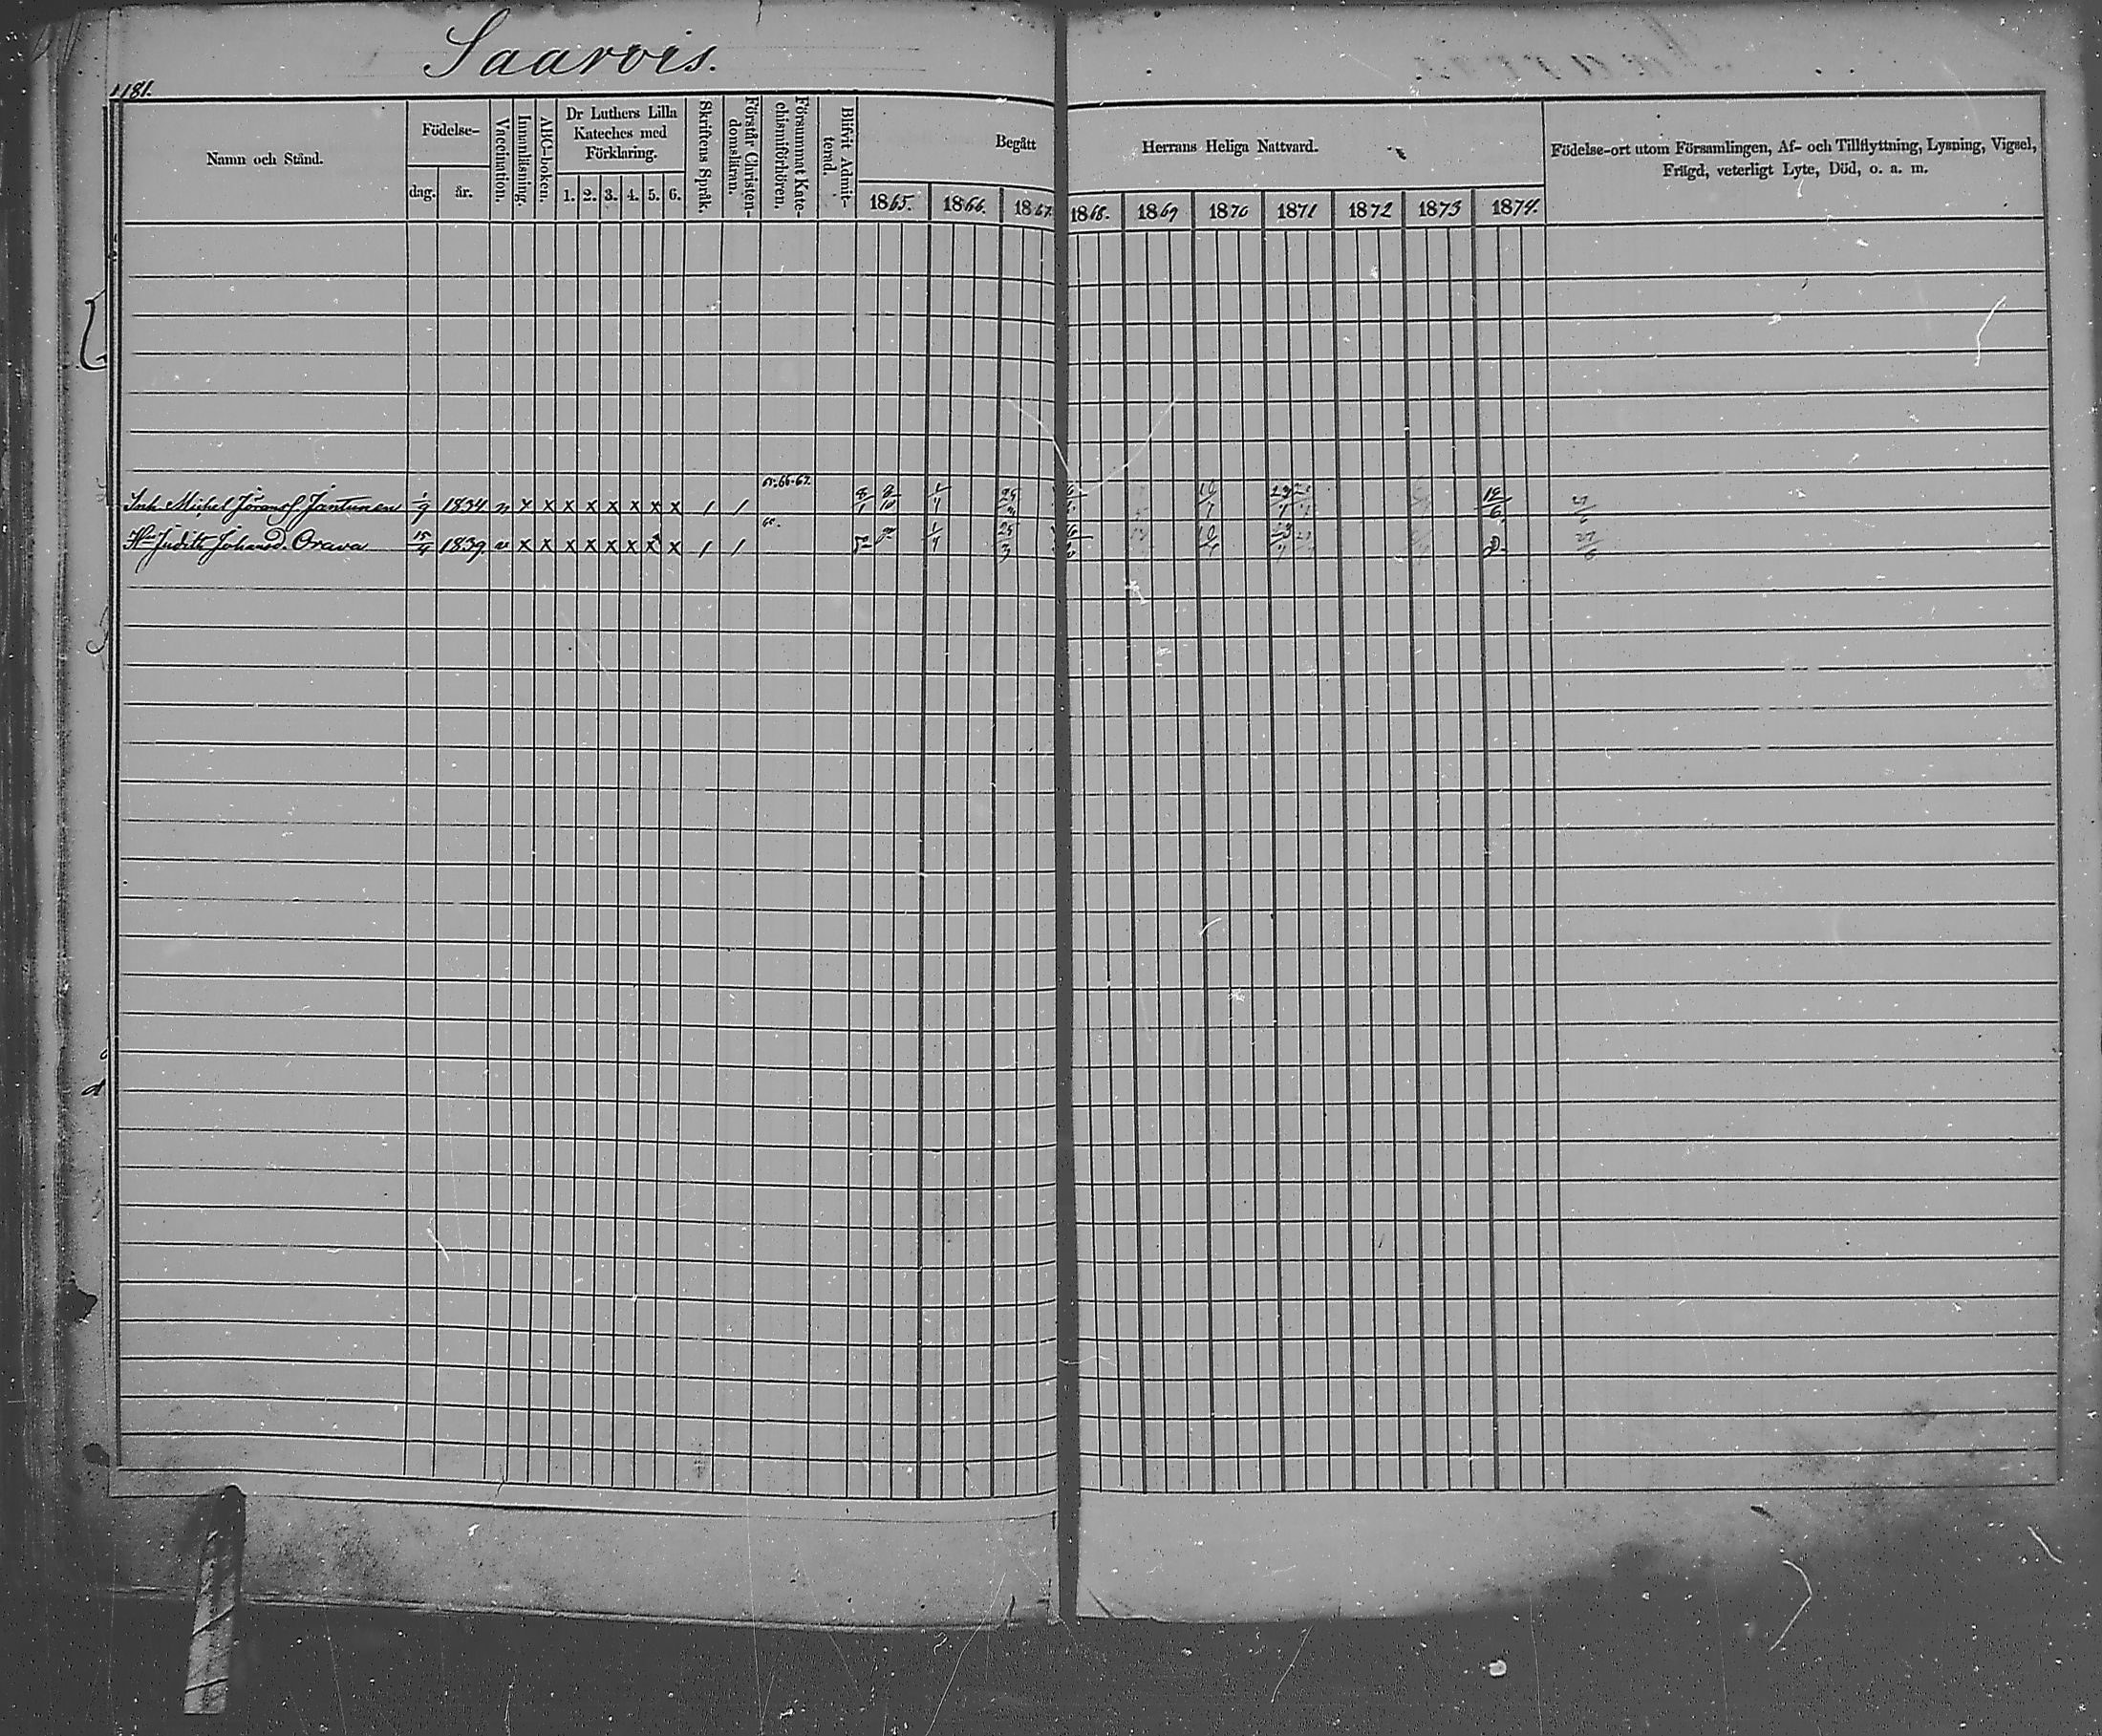 Saarois.
1181.
Namn och Stånd.
Födelse-
dag. år.
Vaccination.
Innanläsning.
ABC-boken.
Dr Luthers Lilla
Kateches med
Förklaring.
1. 2. 3. 4. 5. 6.
Skriftens Språk.
Förstår Christen-
domsläran.
Försummat Kate-
chismiförhören.
Blifvit Admit-
terad.
Begått Herrans Heliga Nattvard.
1865. 1866. 1867. 1868. 1869 1870 1871 1872 1873 1874.
Födelse-ort utom Församlingen, Af- och Tillflyttning, Lysning, Vigsel,
Frägd, veterligt Lyte, Död, o. a. m.
65.66.67.
Inh. Michel Göranss. Jantunen 1/9 1834 v x x x x x x x x 1 1 8/1 8/10 1/4 25/3 10/4 23/4 12/6
65.
Hu Judith Johansd. Orava 15/4 1839 v x x x x x x x x 1 1 1/4 25/3 10/4 23/4 27/6